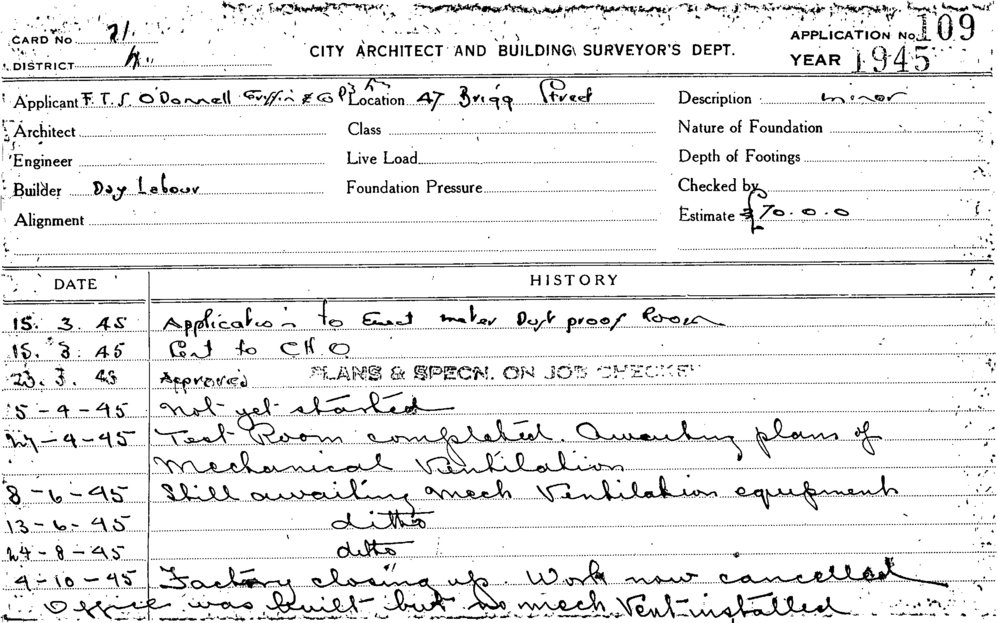 CARD No 21.
DISTRICT
CITY ARCHITECT AND BUILDING SURVEYOR'S DEPT.
APPLICATION No. 109
YEAR 1945
Applicant F.T.S. O'Donnell Griffin & Co Location 47 Brigg Street Description minor
Architect Class Nature of Foundation
Engineer Live Load Depth of Footings
Builder Day Labour Foundation Pressure Checked by
Alignment Estimate £70.0.0
DATE HISTORY
15. 3. 45 Application to Erect meter Dust proof Room
15. 3. 45 Sent to C.H.O
23. 3. 45 Approved PLANS & SPECN. ON JOB CHECKED
5-4-45 Not yet started
27-4-45 Test Room completed. Awaiting plans of
Mechanical Ventilation
8-6-45 Still awaiting mech Ventilation equipment
13-6-45 ditto
24-8-45 ditto
4-10-45 Factory closing up. Work now cancelled
Office was built but no mech Vent installed